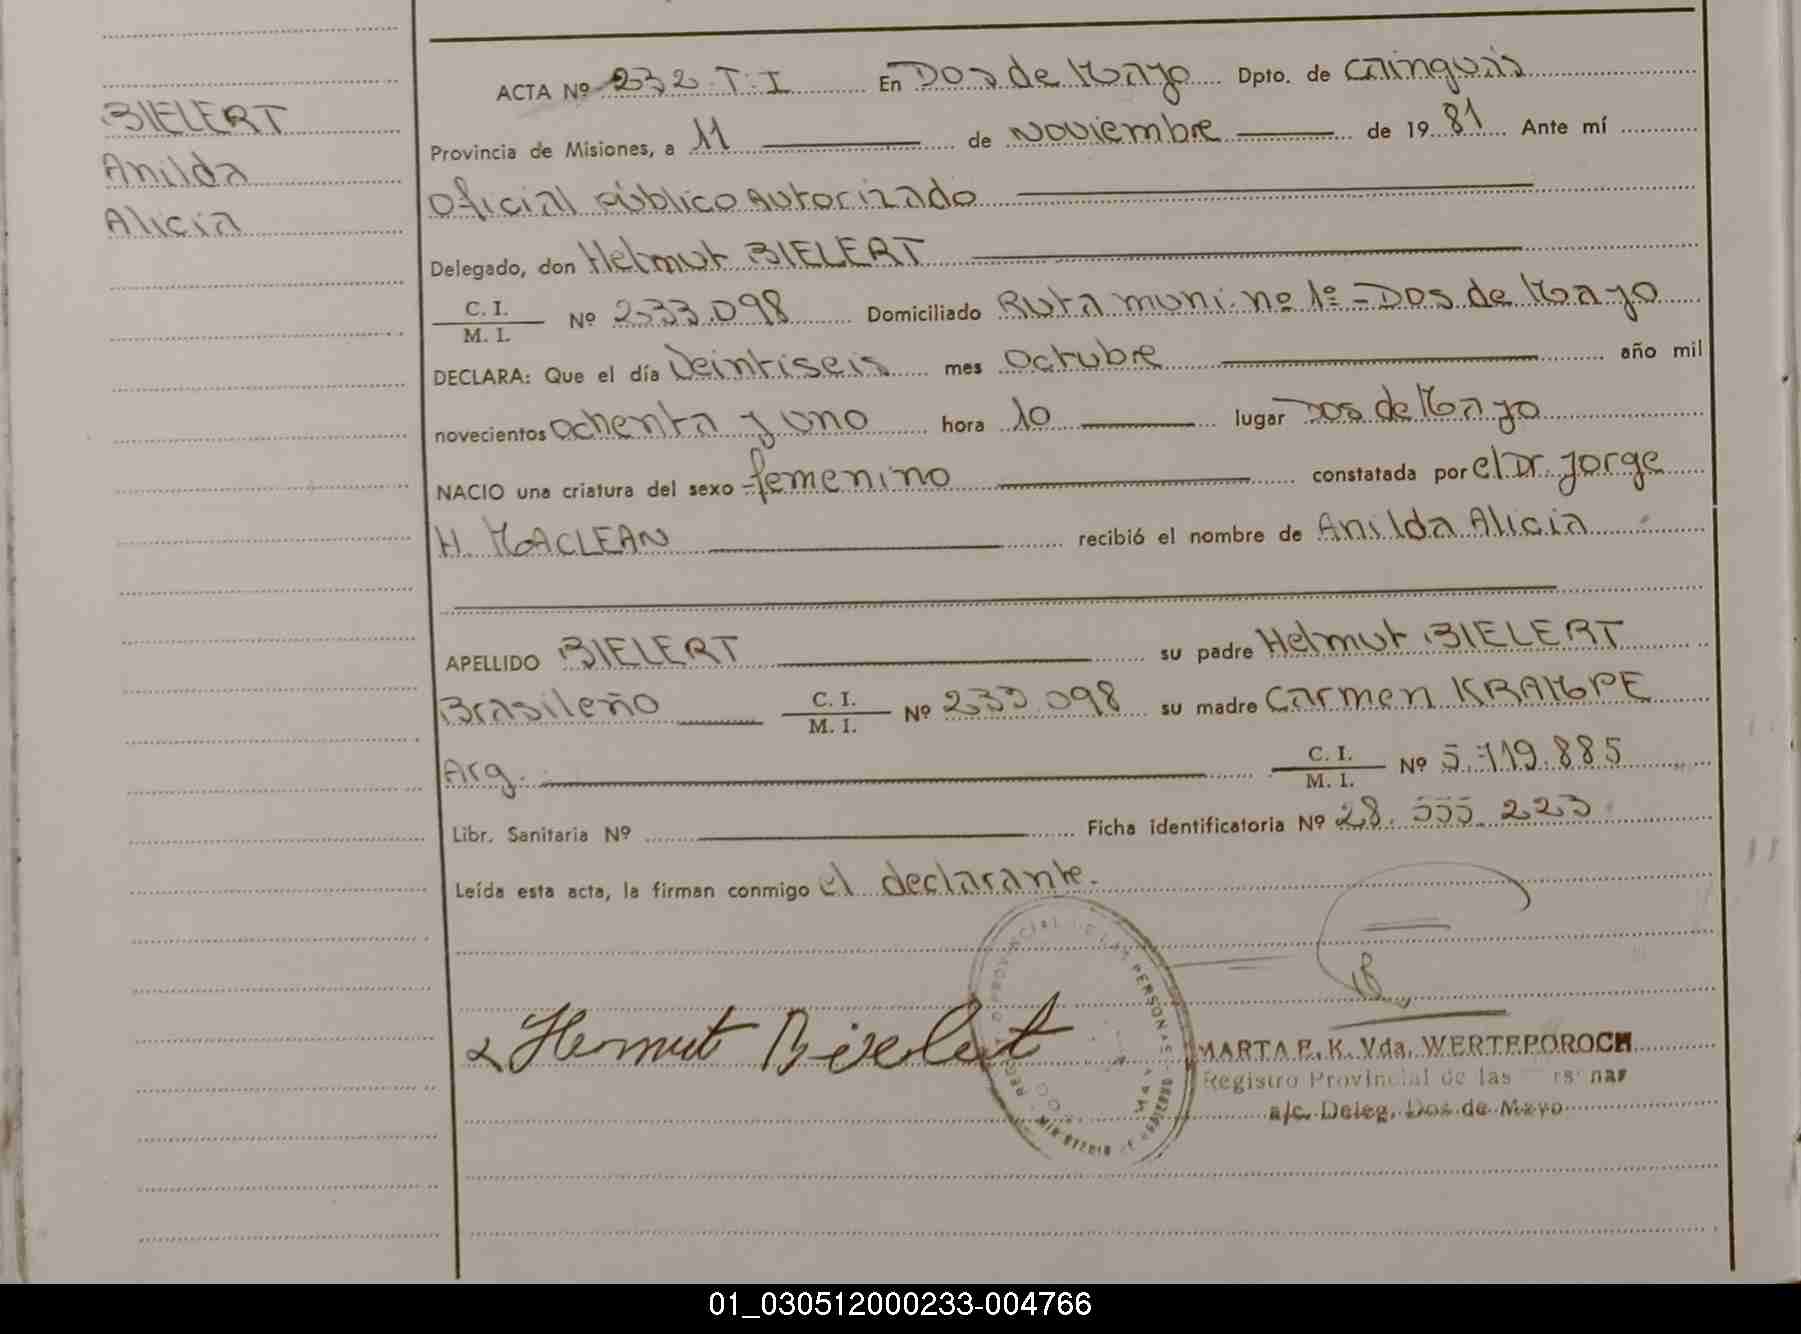 BIELERT
Anilda
Alicia
ACTA Nº 232 T: I En Dos de Mayo Dpto. de Cainguás
Provincia de Misiones, a 11 de Noviembre de 1981 Ante mí
Oficial público Autorizado
Delegado, don Helmut BIELERT
C. I.
M. I. Nº 233.098 Domiciliado Ruta muni. nº 1º - Dos de Mayo
DECLARA: Que el día Veintiseis mes Octubre año mil
novecientos ochenta y uno hora 10 lugar Dos de Mayo
NACIO una criatura del sexo femenino constatada por el Dr. Jorge
H. MACLEAN recibió el nombre de Anilda Alicia
APELLIDO BIELERT su padre Helmut BIELERT
Brasileño C. I. M. I. Nº 233.098 su madre Carmen KRAMPE
Arg. C. I. M. I. Nº 5.119.885
Libr. Sanitaria Nº Ficha identificatoria Nº 28.555.223
Leída esta acta, la firman conmigo el declarante.
Hermut Bielert
MARTA E. K. Vda. WERTEPOROCH
Registro Provincial de las
a/c. Deleg. Dos de Mayo
01_030512000233-004766